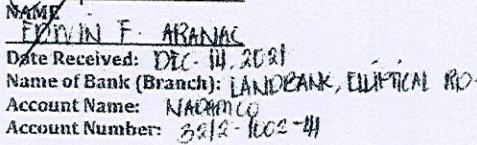 NAME
EDWIN F. ARANAC
Date Received: DEC. 14, 2021
Name of Bank (Branch): LANDBANK, ELLIPTICAL RD.
Account Name: NADAMCO
Account Number: 3212-1002-41